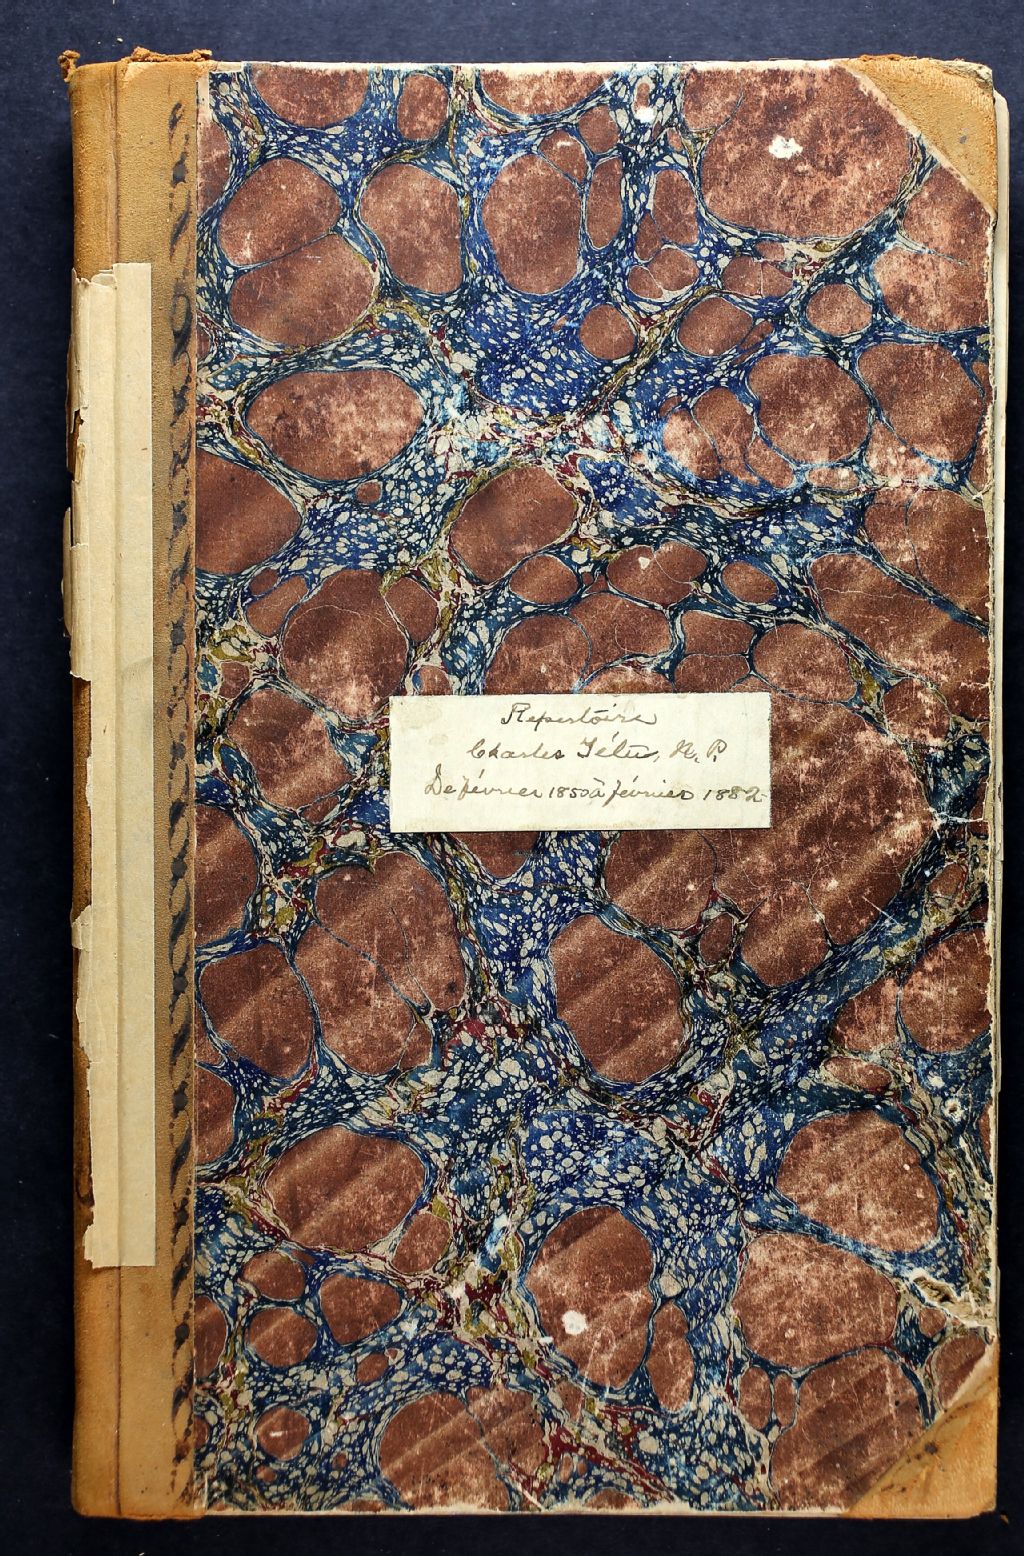 Repertoire
Charles Têtu, N. P.
De février 1850 à février 1882